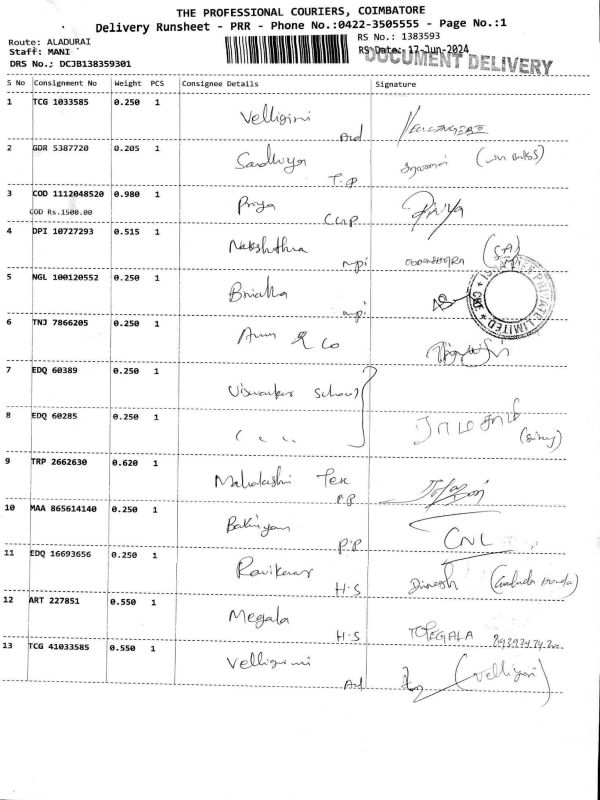 THE PROFESSIONAL COURIERS, COIMBATORE
Delivery Runsheet - PRR - Phone No.:0422-3505555 - Page No.:1
Route: ALADURAI
Staff: MANI
DRS No.: DCJB138359301
RS No.: 1383593
RS Date: 17-Jun-2024
DOCUMENT DELIVERY
S No Consignment No Weight PCS Consignee Details Signature
1 TCG 1033585 0.250 1 Velligiri
2 GDR 5387720 0.205 1 Sandhya T.P
3 COD 1112048520 0.980 1 Priya Priya
COD Rs.1500.00
4 DPI 10727293 0.515 1 Nakshthra mpi (SA)
5 NGL 100120552 0.250 1 mpi
PRIVATE LIMITED
6 TNJ 7866205 0.250 1 Arun & Co
7 EDQ 60389 0.250 1
8 EDQ 60285 0.250 1 " "
9 TRP 2662630 0.620 1 Tex P.P
10 MAA 865614140 0.250 1 P.P CNL
11 EDQ 16693656 0.250 1 Ravikumar H.S Dinesh
12 ART 227851 0.550 1 Megala H.S
13 TCG 41033585 0.550 1 Velligiri (Velligiri)